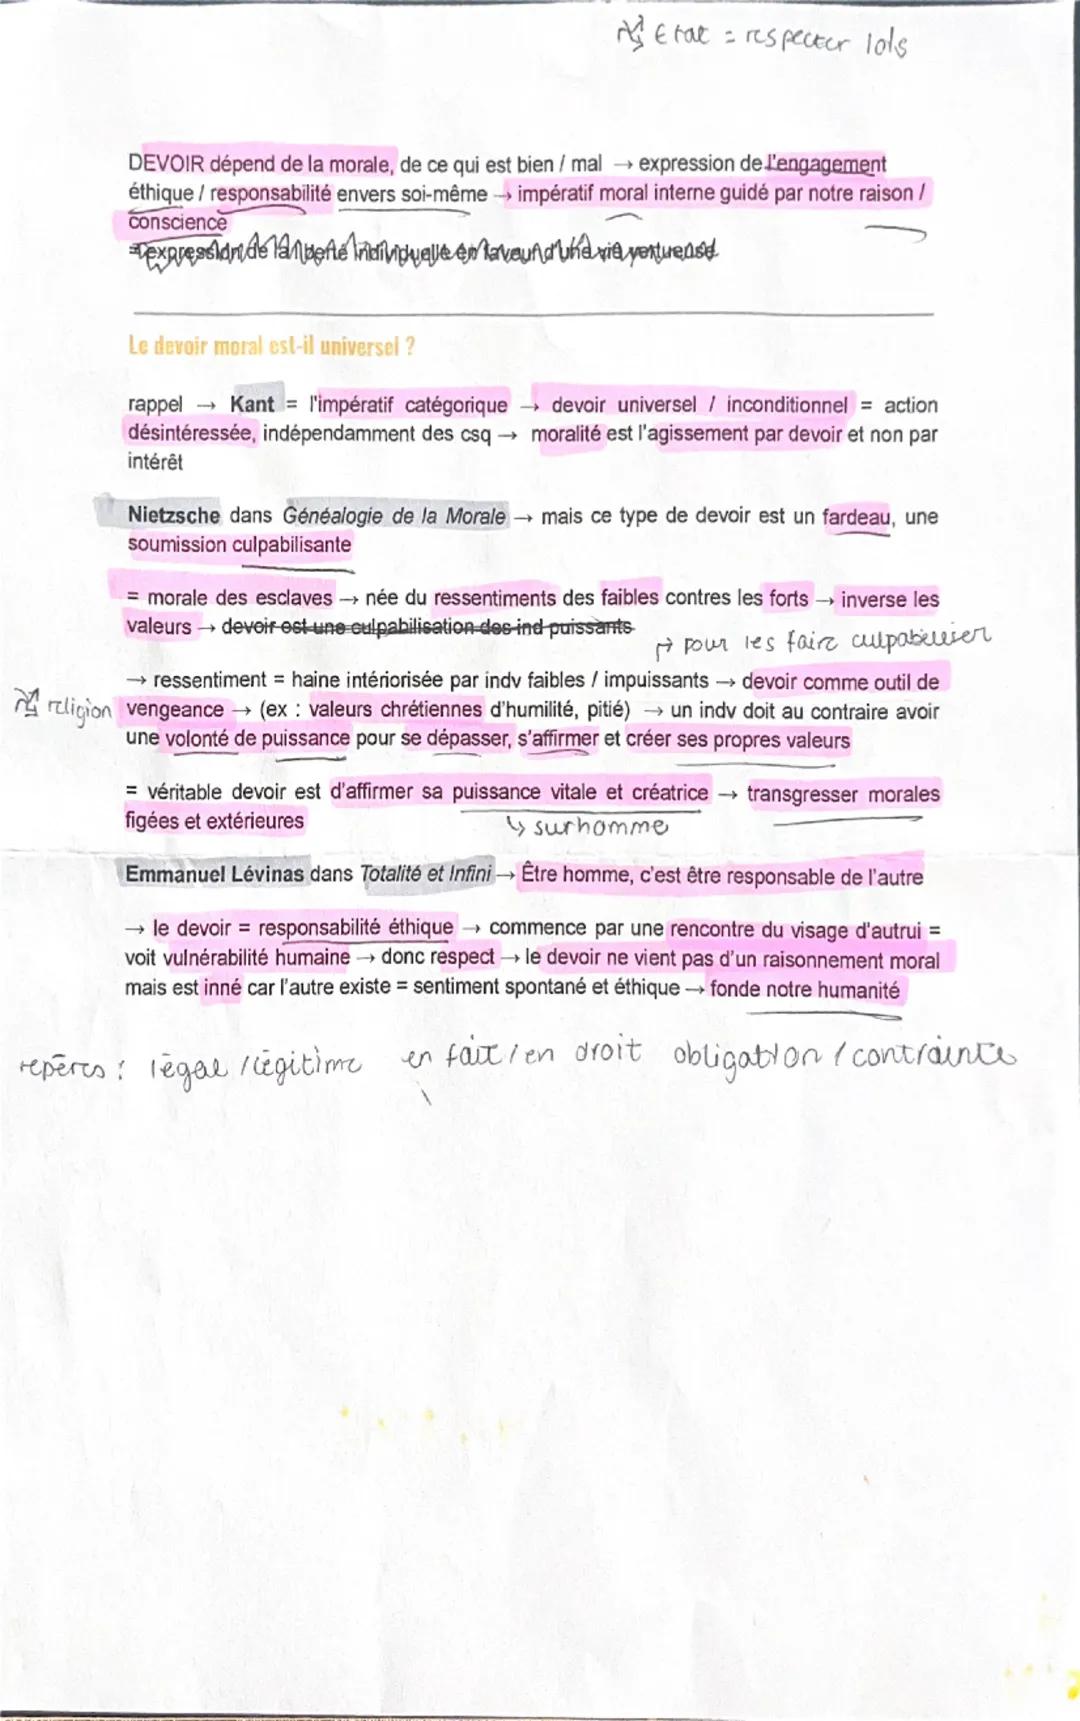 Etat = respecter lois
DEVOIR dépend de la morale, de ce qui est bien / mal → expression de l'engagement
éthique / responsabilité envers soi-même → impératif moral interne guidé par notre raison /
conscience
= expression de la liberté individuelle en faveur d'une vie vertueuse
Le devoir moral est-il universel ?
rappel → Kant = l'impératif catégorique → devoir universel / inconditionnel = action
désintéressée, indépendamment des csq → moralité est l'agissement par devoir et non par
intérêt
Nietzsche dans Généalogie de la Morale → mais ce type de devoir est un fardeau, une
soumission culpabilisante
= morale des esclaves → née du ressentiments des faibles contres les forts → inverse les
valeurs → devoir est une culpabilisation des ind puissants
↳ pour les faire culpabiliser
→ ressentiment = haine intériorisée par indv faibles / impuissants → devoir comme outil de
religion
vengeance → (ex : valeurs chrétiennes d'humilité, pitié) → un indv doit au contraire avoir
une volonté de puissance pour se dépasser, s'affirmer et créer ses propres valeurs
= véritable devoir est d'affirmer sa puissance vitale et créatrice → transgresser morales
figées et extérieures
↳ surhomme
Emmanuel Lévinas dans Totalité et Infini → Être homme, c'est être responsable de l'autre
→ le devoir = responsabilité éthique → commence par une rencontre du visage d'autrui =
voit vulnérabilité humaine → donc respect → le devoir ne vient pas d'un raisonnement moral
mais est inné car l'autre existe = sentiment spontané et éthique → fonde notre humanité
repères : légal / légitime en fait / en droit obligation / contrainte